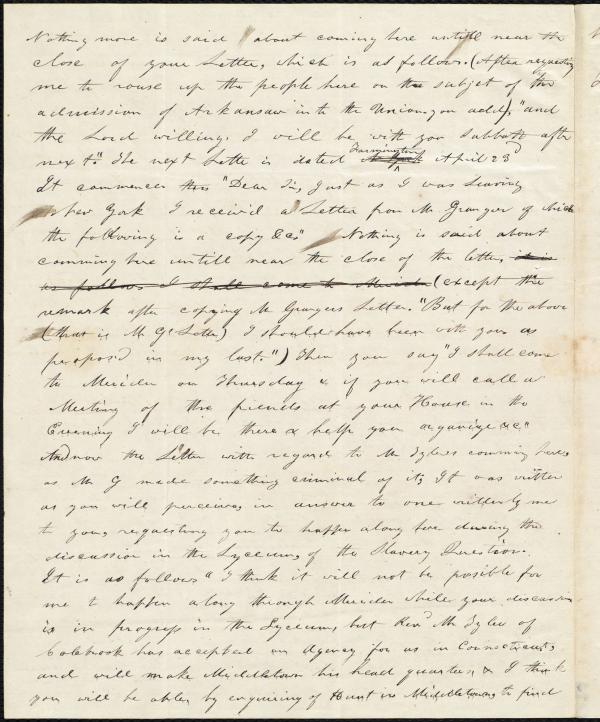 Nothing more is said about coming here untill near the
close of your Letter, which is as follows. (After requesting
me to rouse up the people here on the subjet of the
admission of Arkansaw into the Union, you add), "and
the Lord willing, I will be with you Sabbath after
next." The next Letter is dated New York Farmington April 23d
It commences thus "Dear Sir, Just as I was leaving
New York I receiv'd a Letter from Mr Granger of which
the following is a copy &c." Nothing is said about
comming here untill near the close of the letter, it is
as follows I shall come to Meriden (except the
remark after copying Mr Grangers Letter. "But for the above
(that is Mr G's Letter) I should have been with you as
propos'd in my last.") Then you say "I shall come
to Meriden on Thursday & if you will call a
Meeting of the friends at your House in the
Evening I will be there & help you organize &c."
And now the Letter with regard to Mr Tylers comming here,
as Mr G made something criminal of it, It was written
as you will perceive, in answer to one written by me
to you, requesting you to happen along here during the
discussion in the Lyceum, of the Slavery Question.
It is as follows "I think it will not be posible for
me to happen along through Meriden while your discussion
is in progress in the Lyceum, but Revd Mr Tyler of
Colebrook has accepted an Agency for us in Connecticut,
and will make Middletown his head quarters, & I think
you will be able, by enquiring of Hunt in Middletown, to find